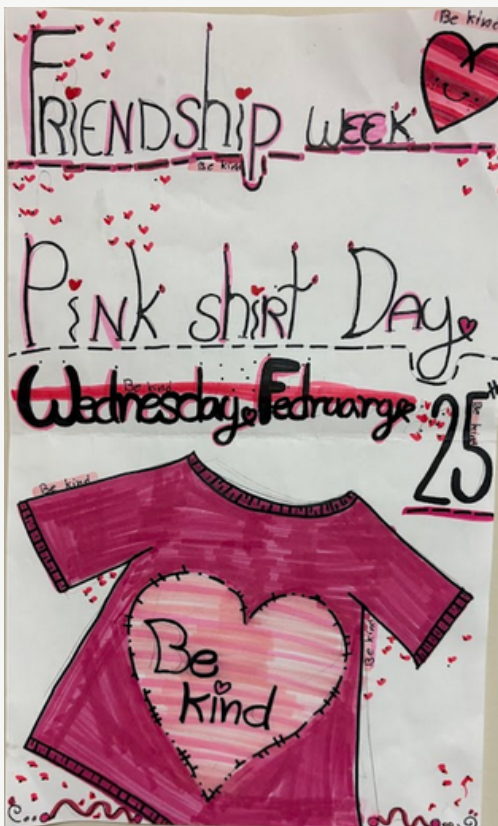 Be kind
Friendship week
Be kind
Pink shirt Day
Be kind
Wednesday, Fedruarge 25th
Be kind
Be kind
Be
kind
Be kind